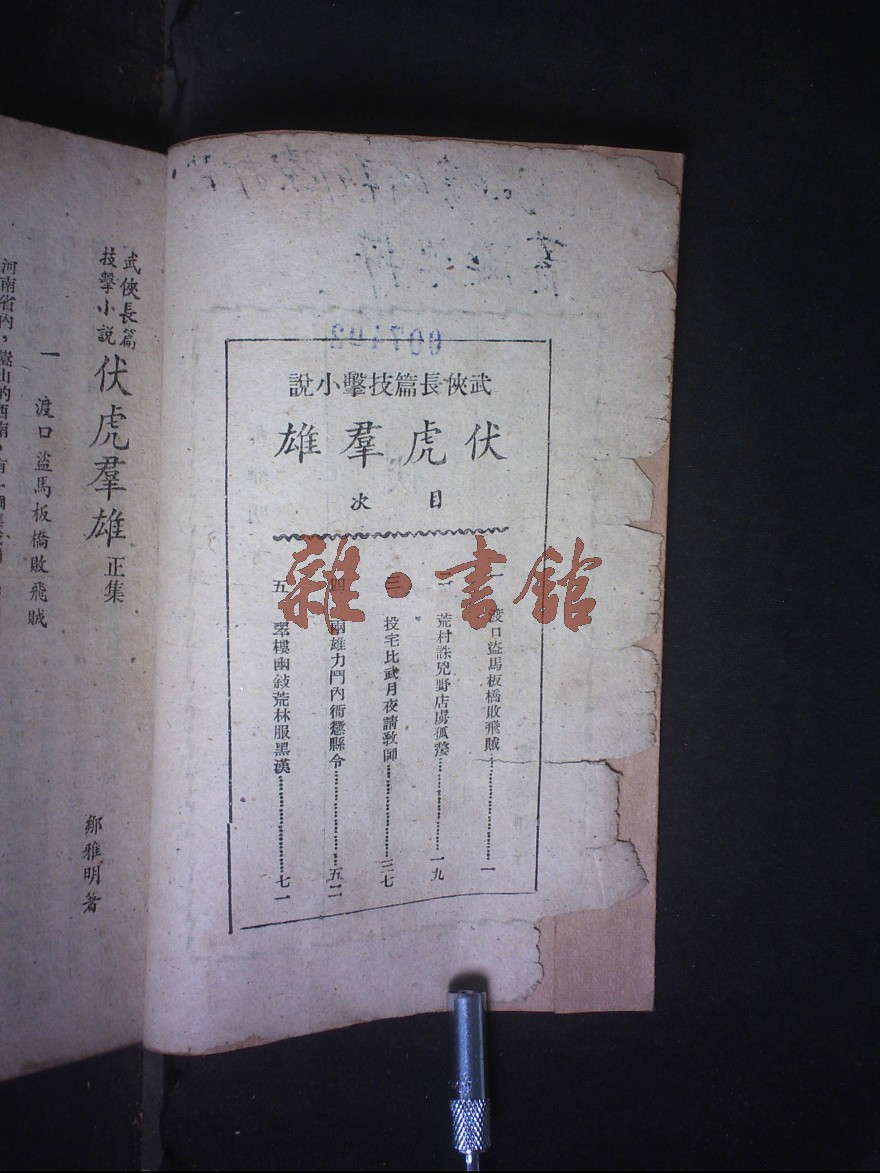 武俠長篇技擊小說
伏虎羣雄
目次
一 渡口盜馬板橋敗飛賊…………一
二 荒村誅兇野店虜孤孀…………一九
三 投宅比武月夜請教師…………三七
四 兩雄力鬥內衙懲縣令…………五二
五 翠樓幽敍荒林服黑漢…………七一
雜·書館
武俠長篇
技擊小說
伏虎羣雄 正集
鄒雅明著
一 渡口盜馬板橋敗飛賊
河南省內，嵩山的西南，有一個